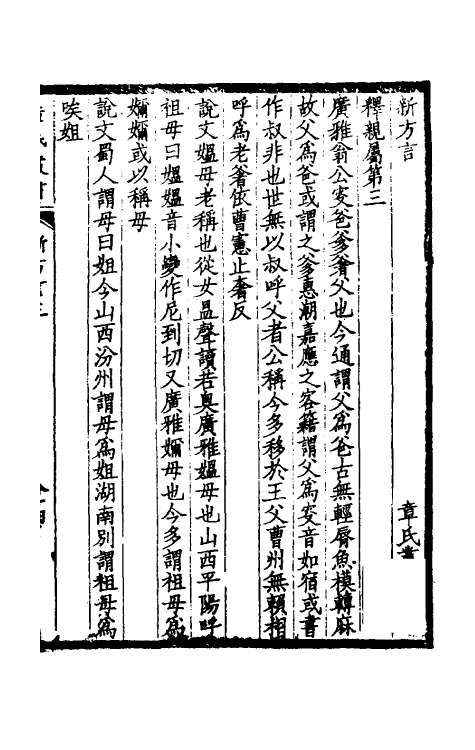 新方言　章氏書
釋親屬第三
廣雅翁公叜爸爹奢父也今通謂父爲爸古無輕脣魚模轉麻
故父爲爸或謂之爹惠潮嘉應之客籍謂父爲叜音如宿或書
作叔非也世無以叔呼父者公稱今多移於王父曹州無賴相
呼爲老奢依曹憲止奢反
說文媼母老稱也從女𥁕聲讀若奧廣雅媼母也山西平陽呼
祖母曰媼媼音小變作尼到切又廣雅嬭母也今多謂祖母爲
嬭嬭或以稱母
說文蜀人謂母曰姐今山西汾州謂母爲姐湖南別謂祖母爲
唉姐